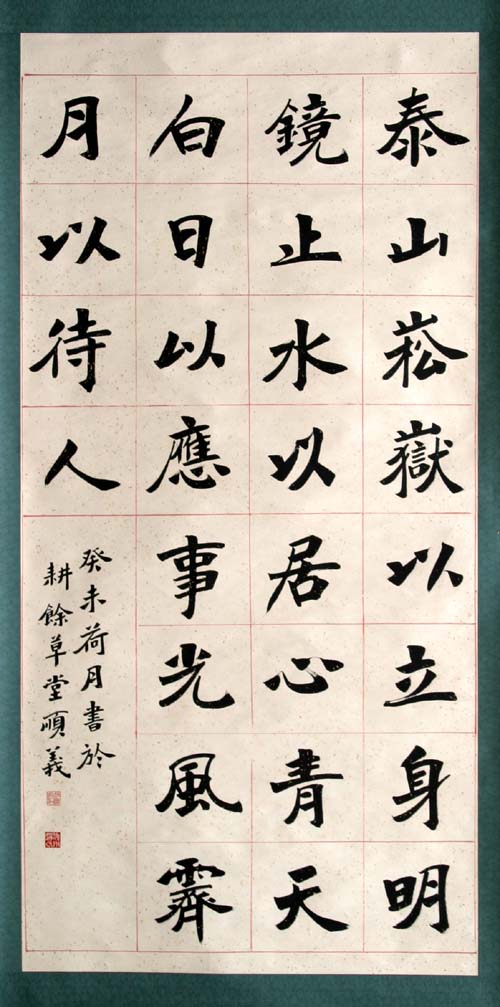 泰山崧嶽以立身明
鏡止水以居心青天
白日以應事光風霽
月以待人
癸未荷月書於
耕餘草堂順義